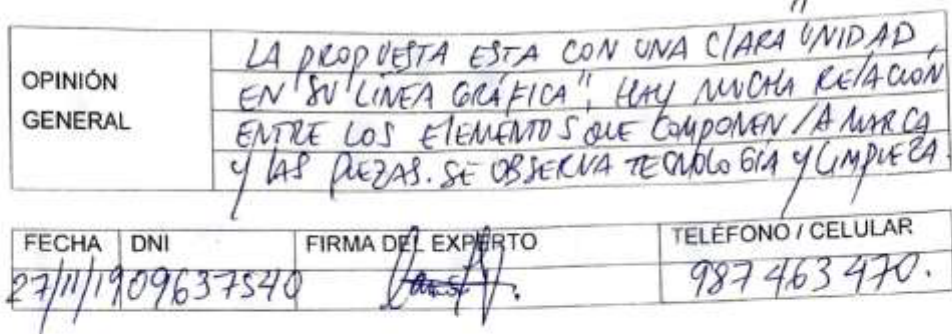 OPINIÓN
GENERAL
LA PROPUESTA ESTA CON UNA CLARA UNIDAD
EN SU "LÍNEA GRÁFICA", HAY MUCHA RELACIÓN
ENTRE LOS ELEMENTOS QUE COMPONEN LA MARCA
Y LAS PIEZAS. SE OBSERVA TECNOLOGÍA Y LIMPIEZA.
FECHA DNI FIRMA DEL EXPERTO TELÉFONO / CELULAR
27/11/19 09637540 987 463 470.